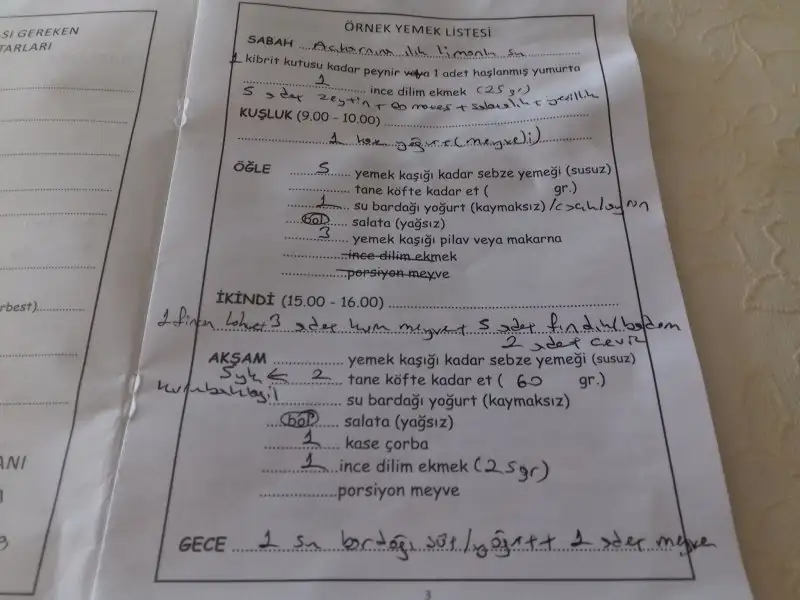 SI GEREKEN
TARLARI
rbest)
ANI
3
ÖRNEK YEMEK LİSTESİ
SABAH ... ılık limonlu su
1 kibrit kutusu kadar peynir veya 1 adet haşlanmış yumurta
1 ince dilim ekmek (25 gr)
5 adet zeytin + domates + salatalık + yeşillik
KUŞLUK (9.00 - 10.00)
1 kase yoğurt (meyveli)
ÖĞLE 5 yemek kaşığı kadar sebze yemeği (susuz)
tane köfte kadar et ( gr.)
1 su bardağı yoğurt (kaymaksız) /cacık/ayran
bol salata (yağsız)
3 yemek kaşığı pilav veya makarna
ince dilim ekmek
porsiyon meyve
İKİNDİ (15.00 - 16.00)
1 fincan kahve + 3 adet kuru meyve + 5 adet fındık/badem
2 adet ceviz
AKŞAM yemek kaşığı kadar sebze yemeği (susuz)
5yk ← 2 tane köfte kadar et ( 60 gr.)
kurubaklagil su bardağı yoğurt (kaymaksız)
bol salata (yağsız)
1 kase çorba
1 ince dilim ekmek (25gr)
porsiyon meyve
GECE 1 su bardağı süt/yoğurt + 1 adet meyve
3